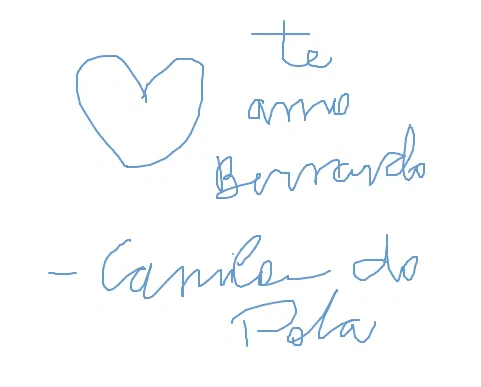 te
amo
Bernardo
- Camila do
Pola